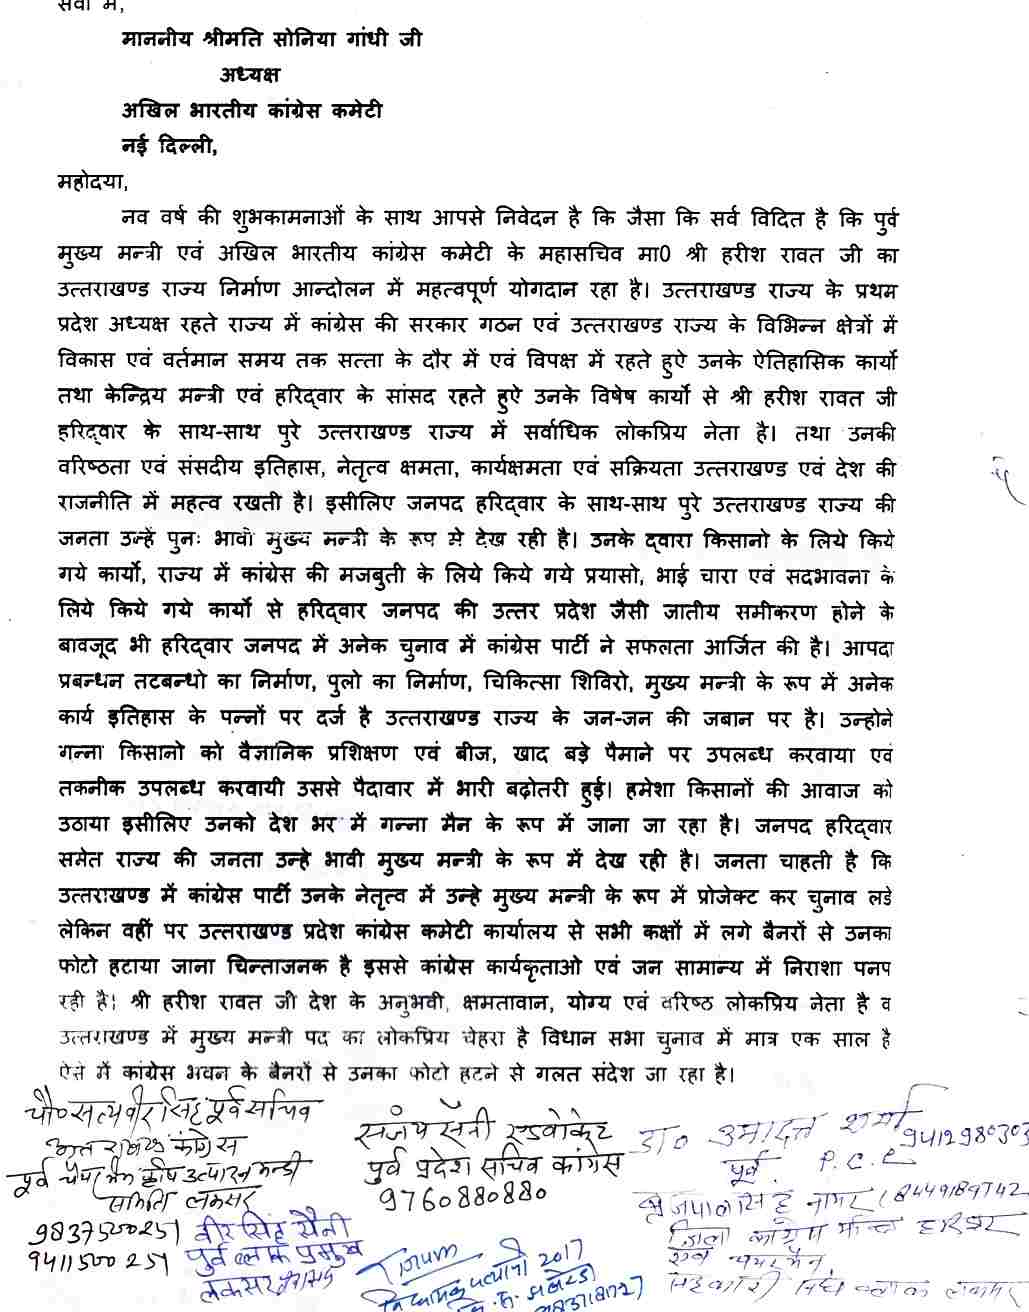 सेवा में,
माननीय श्रीमति सोनिया गांधी जी
अध्यक्ष
अखिल भारतीय कांग्रेस कमेटी
नई दिल्ली,
महोदया,
नव वर्ष की शुभकामनाओं के साथ आपसे निवेदन है कि जैसा कि सर्व विदित है कि पुर्व
मुख्य मन्त्री एवं अखिल भारतीय कांग्रेस कमेटी के महासचिव मा0 श्री हरीश रावत जी का
उत्तराखण्ड राज्य निर्माण आन्दोलन में महत्वपूर्ण योगदान रहा है। उत्तराखण्ड राज्य के प्रथम
प्रदेश अध्यक्ष रहते राज्य में कांग्रेस की सरकार गठन एवं उत्तराखण्ड राज्य के विभिन्न क्षेत्रों में
विकास एवं वर्तमान समय तक सत्ता के दौर में एवं विपक्ष में रहते हुऐ उनके ऐतिहासिक कार्यो
तथा केन्द्रिय मन्त्री एवं हरिद्वार के सांसद रहते हुऐ उनके विषेष कार्यो से श्री हरीश रावत जी
हरिद्वार के साथ-साथ पुरे उत्तराखण्ड राज्य में सर्वाधिक लोकप्रिय नेता है। तथा उनकी
वरिष्ठता एवं संसदीय इतिहास, नेतृत्व क्षमता, कार्यक्षमता एवं सक्रियता उत्तराखण्ड एवं देश की
राजनीति में महत्व रखती है। इसीलिए जनपद हरिद्वार के साथ-साथ पुरे उत्तराखण्ड राज्य की
जनता उन्हें पुनः भावी मुख्य मन्त्री के रूप मे देख रही है। उनके द्वारा किसानो के लिये किये
गये कार्यो, राज्य में कांग्रेस की मजबुती के लिये किये गये प्रयासो, भाई चारा एवं सदभावना के
लिये किये गये कार्यो से हरिद्वार जनपद की उत्तर प्रदेश जैसी जातीय समीकरण होने के
बावजूद भी हरिद्वार जनपद में अनेक चुनाव में कांग्रेस पार्टी ने सफलता आर्जित की है। आपदा
प्रबन्धन तटबन्धो का निर्माण, पुलो का निर्माण, चिकित्सा शिविरो, मुख्य मन्त्री के रूप में अनेक
कार्य इतिहास के पन्नों पर दर्ज है उत्तराखण्ड राज्य के जन-जन की जबान पर है। उन्होने
गन्ना किसानो को वैज्ञानिक प्रशिक्षण एवं बीज, खाद बड़े पैमाने पर उपलब्ध करवाया एवं
तकनीक उपलब्ध करवायी उससे पैदावार में भारी बढ़ोतरी हुई। हमेशा किसानों की आवाज को
उठाया इसीलिए उनको देश भर में गन्ना मैन के रूप में जाना जा रहा है। जनपद हरिद्वार
समेत राज्य की जनता उन्हे भावी मुख्य मन्त्री के रूप में देख रही है। जनता चाहती है कि
उत्तराखण्ड में कांग्रेस पार्टी उनके नेतृत्व में उन्हे मुख्य मन्त्री के रूप में प्रोजेक्ट कर चुनाव लडे
लेकिन वहीं पर उत्तराखण्ड प्रदेश कांग्रेस कमेटी कार्यालय से सभी कक्षों में लगे बैनरों से उनका
फोटो हटाया जाना चिन्ताजनक है इससे कांग्रेस कार्यकृताओ एवं जन सामान्य में निराशा पनप
रही है। श्री हरीश रावत जी देश के अनुभवी, क्षमतावान, योग्य एवं वरिष्ठ लोकप्रिय नेता है व
उत्तराखण्ड में मुख्य मन्त्री पद का लोकप्रिय चेहरा है विधान सभा चुनाव में मात्र एक साल है
ऐसे में कांग्रेस भवन के बैनरों से उनका फोटो हटने से गलत संदेश जा रहा है।
चौ० सत्यवीर सिंह पूर्व सचिव
उत्तराखण्ड कांग्रेस
पूर्व चेयरमैन कृषि उत्पादन मन्डी
समिति लकसर
9837500251
9411500251
वीर सिंह सैनी
पुर्व ब्लाक प्रमुख
लकसर
संजय सैनी एडवोकेट
पुर्व प्रदेश सचिव कांग्रेस
9760880880
2017
डा० उमादत्त शर्मा
9412980303
पूर्व P.C.C
बृजपाल सिंह नागर (8449189742
जिला कांग्रेस